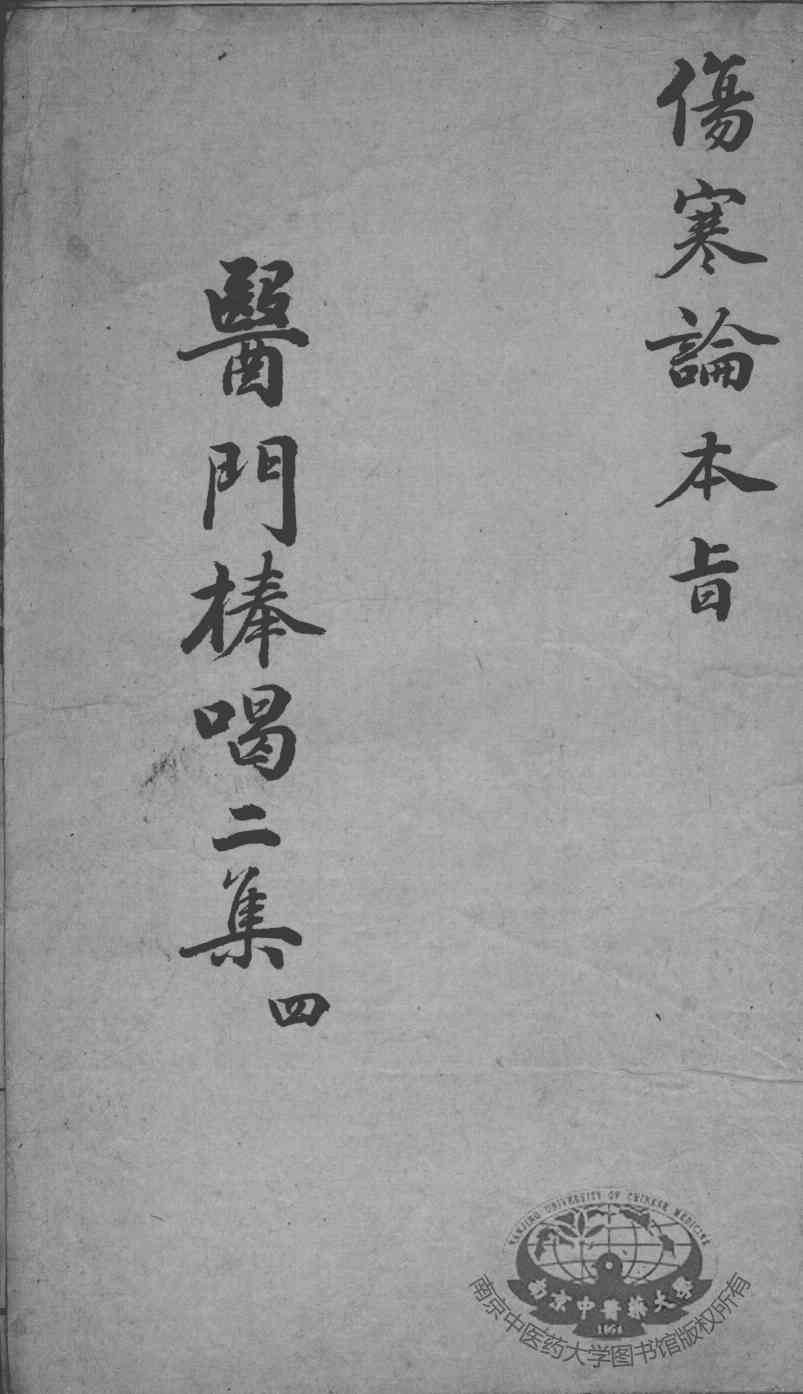 傷寒論本旨
醫門棒喝二集
四
NANJING UNIVERSITY OF CHINESE MEDICINE
南京中醫藥大學
1954
南京中医药大学图书馆版权所有